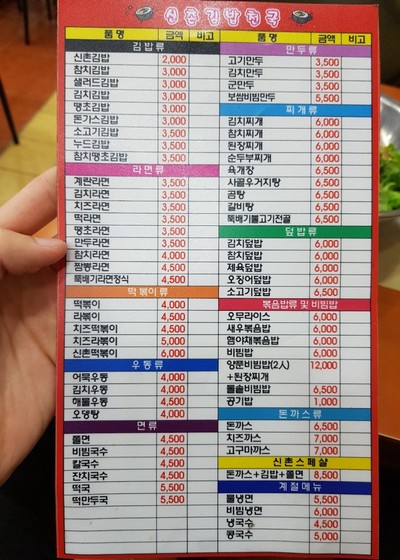 신촌김밥천국
품 명 금액 비고
김 밥 류
신촌김밥 2,000
참치김밥 3,000
샐러드김밥 3,000
김치김밥 3,000
땡초김밥 3,000
돈가스김밥 3,500
소고기김밥 3,500
누드김밥 3,500
참치땡초김밥 3,500
라 면 류
계란라면 3,500
김치라면 3,500
치즈라면 3,500
떡라면 3,500
땡초라면 3,500
만두라면 3,500
참치라면 4,000
짬뽕라면 4,500
뚝배기라면정식 4,500
떡 볶 이 류
떡볶이 4,000
라볶이 4,500
치즈떡볶이 4,500
치즈라볶이 5,000
신촌떡볶이 6,000
우 동 류
어묵우동 4,000
김치우동 4,000
해물우동 4,500
오뎅탕 4,000
면 류
쫄면 4,500
비빔국수 4,500
칼국수 4,500
잔치국수 4,500
떡국 5,500
떡만두국 5,500
품 명 금액 비고
만 두 류
고기만두 3,500
김치만두 3,500
군만두 3,500
보쌈비빔만두 5,500
찌 개 류
김치찌개 6,000
참치찌개 6,000
된장찌개 6,000
순두부찌개 6,000
육개장 6,500
사골우거지탕 6,500
곰탕 6,500
갈비탕 6,500
뚝배기불고기전골 6,500
덮 밥 류
김치덮밥 6,000
참치덮밥 6,000
제육덮밥 6,000
오징어덮밥 6,000
소고기덮밥 6,500
볶음밥류 및 비빔밥
오무라이스 6,000
새우볶음밥 6,000
햄야채볶음밥 6,000
비빔밥 6,000
양푼비빔밥(2人) 12,000
+된장찌개
돌솥비빔밥 6,500
공기밥 1,000
돈 까 스 류
돈까스 6,500
치즈까스 7,000
고구마까스 7,000
신 촌 스 페 샬
돈까스+김밥+쫄면 8,500
계 절 메 뉴
물냉면 5,500
비빔냉면 6,000
냉국수 4,500
콩국수 5,000